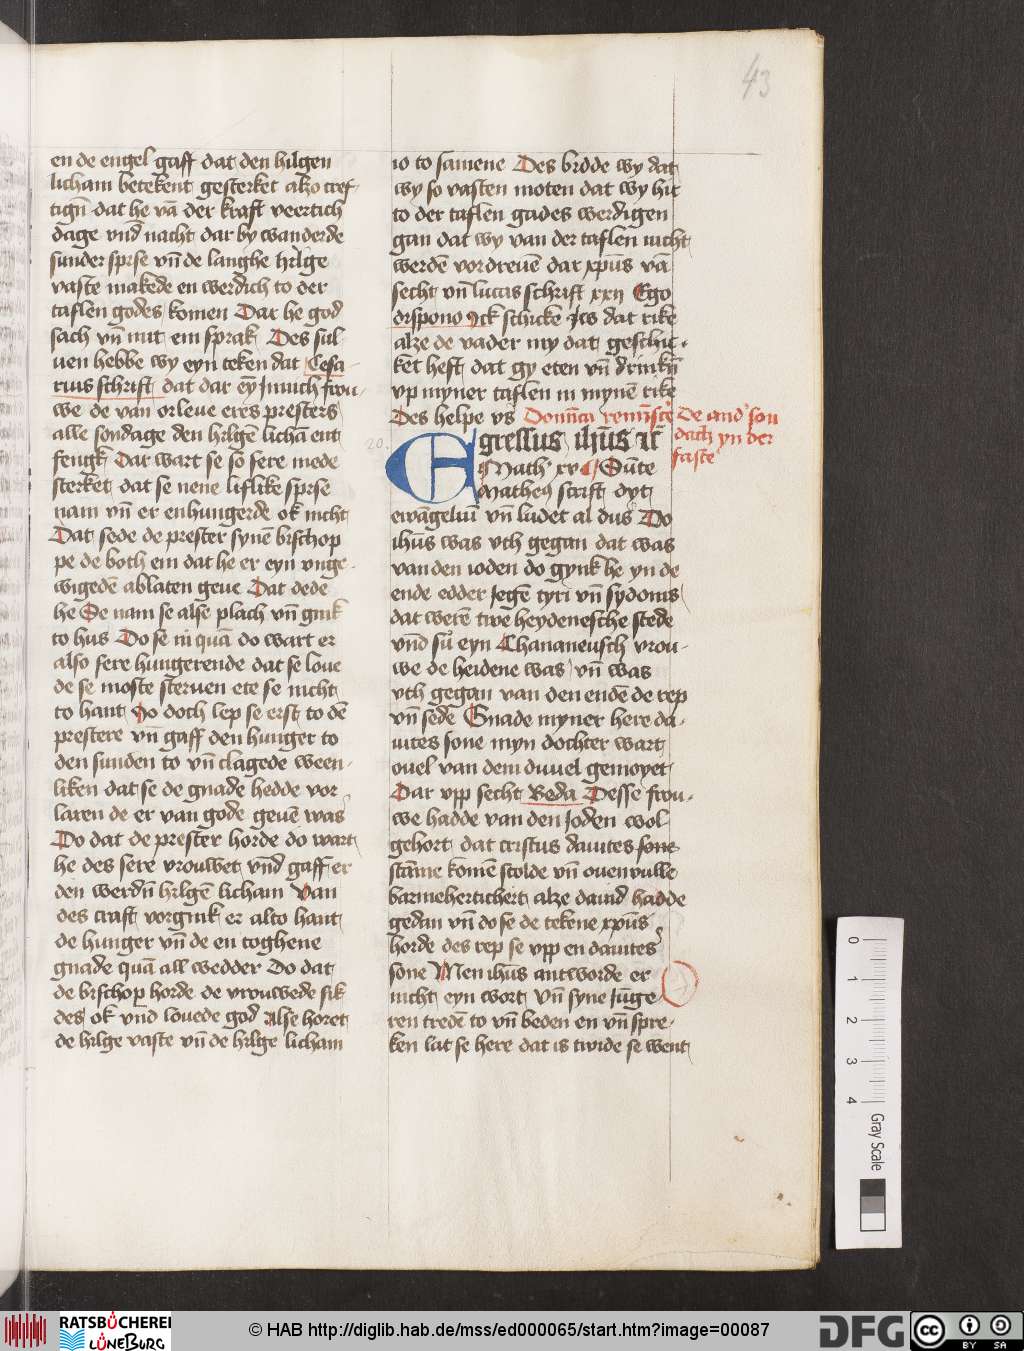 43
en de engel gaff dat den hilgen
licham betekent gesterket alzo cref
tigñ dat he vā der kraft veertich
dage vnd nacht dar by wanderde
sunder spise vn̄ de langhe hilge
vaste makede en werdich to der
taflen godes komen Dar he god
sach vn̄ mit em sprak Des sul
uen hebbe wy eyn teken dat Cesa
rius schrift dat dar ey Junich frou
we de van orleue eres presters
alle sondage den hilgē lichā ent
fengk Dar wart se so sere mede
sterket dat se nene liflike spise
nam vn̄ er en hungerde ok nicht
Dat sede de prester synē bischop
pe de both em dat he er eyn vnge
wigedē ablaten geue Dat dede
he De nam se alse plach vn̄ gink
to hus Do se in quā do wart er
also sere hungerende dat se loue
de se moste steruen ete se nicht
to hant Jo doch lep se erst to dē
prestere vn̄ gaff den hunger to
den sunden to vn̄ clagede ween
liken dat se de gnade hedde vor
laren de er van gode geuē was
Do dat de prester horde do wart
he des sere vrouwet vnd gaff er
den werdn̄ hilgē licham Van
des craft vorgink er alto hant
de hunger vn̄ de en toghene
gnade quā all wedder Do dat
de bischop horde de vrouwede sik
des ok vnd louede god Alse horet
de hilge vaste vn̄ de hilge licham
io to samene Des bidde wy dat
wy so vasten moten dat wy hir
to der taflen gades werdigen
gan dat wy van der taflen nicht
werdē vordreuē dar xp̄us vā
secht vn̄ lucas schrift xxij Ego
dispono Ick schicke Jw dat rike
alze de vader my dat geschic
ket heft dat gy eten vn̄ drinkn̄
vp myner taflen in mynē rike
Des helpe vs Domīca remīscē De and' son
dach yn der
faste
20.
Egressus ih̄us ic̄
Math' xv Sūte
Matheus scrift dyt
ewāgeliū vn̄ ludet al dus Do
ih̄us was vth gegan dat was
van den ioden do gynk he yn de
ende edder Jegē tyri vn̄ sydonis
dat werē twe heydenesche stede
vnd su eyn Chananeusch vrou
we de heidene was vn̄ was
vth gegan van den endē de rep
vn̄ sede Gnade myner here da
uites sone myn dochter wart
ouel van dem duuel gemoyet
Dar vpp secht Beda Desse frou
we hadde van den Joden wol
gehort dat cristus dauites sone
stāme komē scolde vn̄ ouenvulle
barmehertichert alze dauid hadde
gedan vn̄ do se de tekene xp̄us
horde des rep se vpp en dauites
sone Men ih̄us antworde er
nicht eyn wort vn̄ syne Jūge
ren tredē to vn̄ beden en vn̄ spre
ken lat se here dat is twide se went
0 1 2 3 4 Gray Scale
RATSBÜCHEREI
LÜNEBURG
© HAB http://diglib.hab.de/mss/ed000065/start.htm?image=00087
DFG
cc BY SA